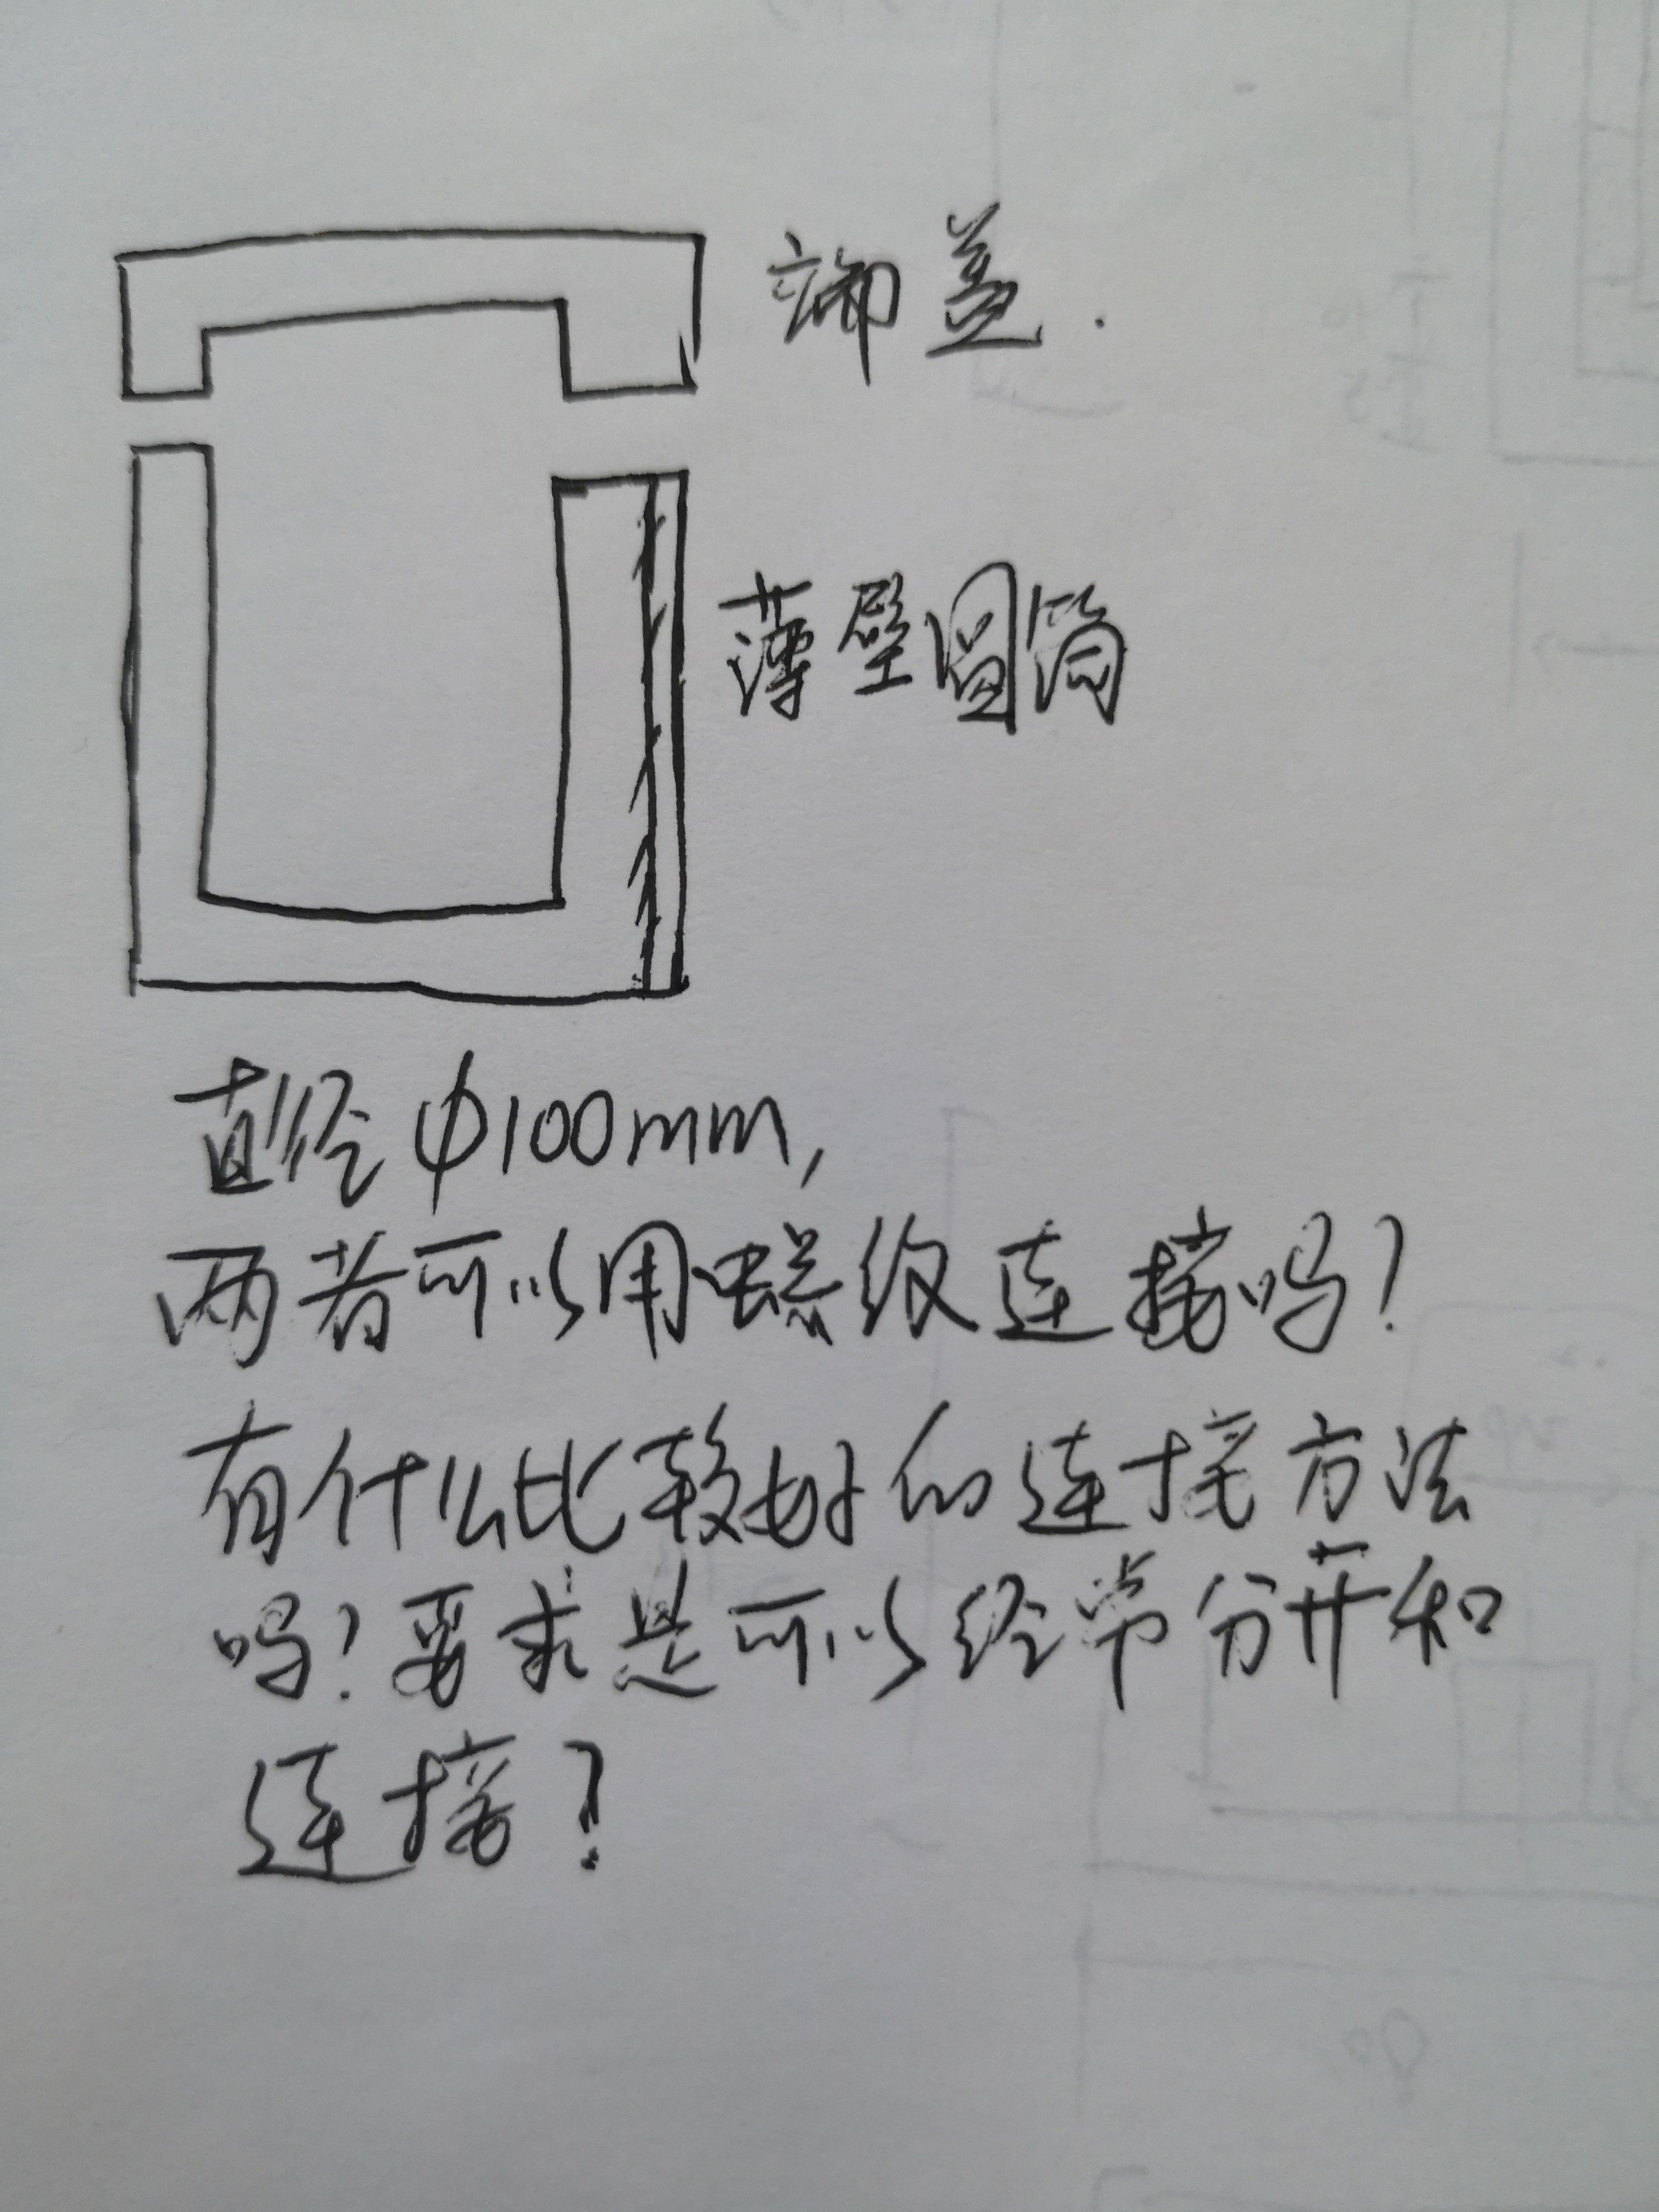 端盖.
薄壁圆筒
直径φ100mm,
两者可以用螺纹连接吗?
有什么比较好的连接方法
吗?要求是可以经常分开和
连接?